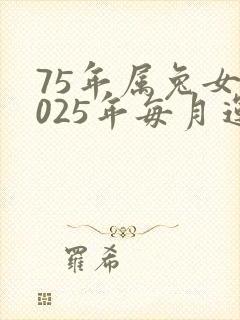 75年属兔女
025年每月
羅希